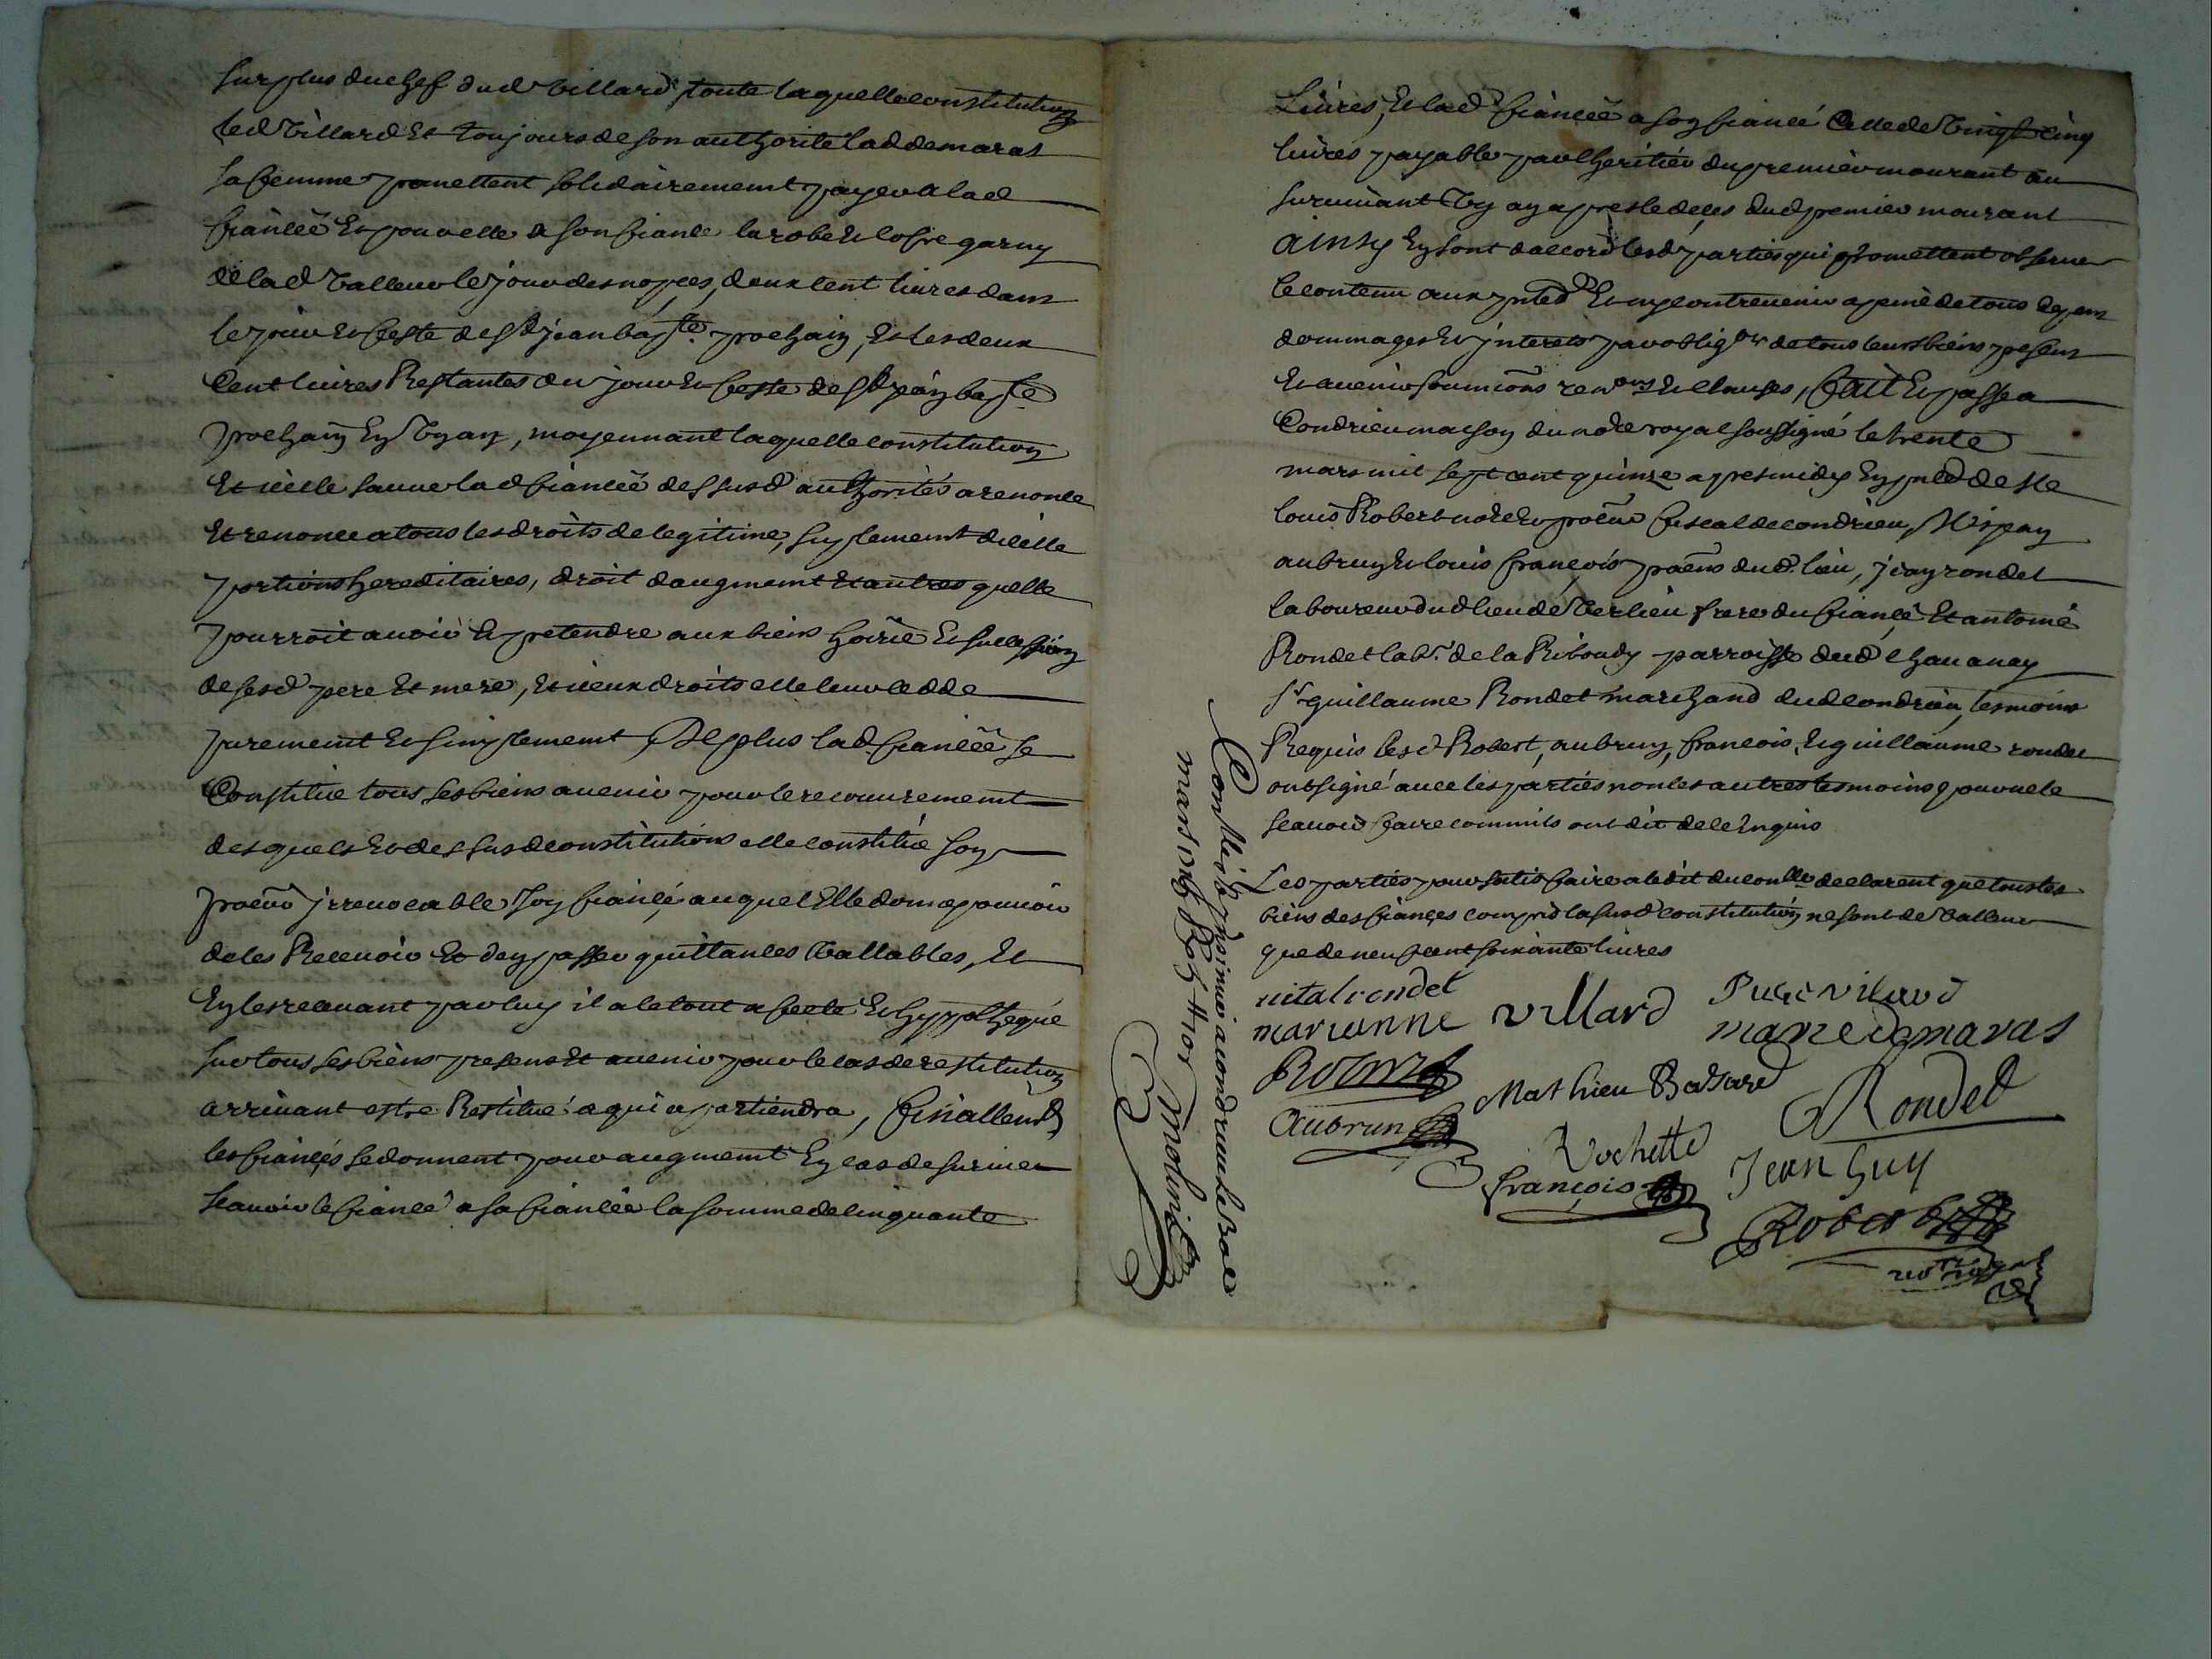 surplus du chef dud villard, toute laquelle constitution
led villard et toujours de son authorité lad demaras
sa femme promettent solidairement payer a lad
fiancéé et pour elle a son fiancé la robe et cofre garny
de lad valleur le jour des nopces, deux cent livres dans
le jour et feste de st jean bapte prochain, et les deux
cent livres restantes du jour et feste de st jean bapte
prochain en un an, moyennant laquelle constitution
et icelle sauve lad fiancéé dessusd authorité a renoncé
et renonce a tous les droits de legitime, suplement dicelle
portions hereditaires, droit daugment et autres quelle
pourroit avoir et pretendre aux biens hoirie et succession
de sesd pere et mere, et iceux droits elle leur cedde
purement et simplement, de plus lad fiancéé se
constitue tous ses biens avenir pour le recouvrement
desquels et dessusd constitutions elle constitue son
procur irrevocable son fiancé, auquel elle donne pouvoir
de les recevoir et den passer quittances vallables, et
en les recevant par luy il a le tout afecté et hyppothequé
sur tous ses biens presens et avenir pour le cas de restitution
arrivant estre restitué a qui apartiendra, finallemt
les fiancés se donnent pour augment en cas de survie
scavoir le fiancé a sa fiancéé la somme de cinquante
livres, et lad fiancéé a son fiancé celle de vingt cinq
livres payable par lheritier du premier mourant au
survivant un an apres le deces dud premier mourant
ainsy en sont daccord lesd parties qui promettent observer
le contenu aux pntes et ny contrevenir a peine de tous depens
dommages et interets par obligon de tous leurs biens presens
et avenir soumions renons et clauses, fait et passé a
Condrieu maison du nore royal soussigné le trente
mars mil sept cent quinze apres midy en pnce de Me
louis Robert nore et procur fiscal de condrieu,
aubrun et louis françois dud lieu, jean rondet
laboureur dud lieu de verlieu frere du fiancé et antoine
Rondet labr de la Ribaudy parroisse dud chavanay
sr guillaume Rondet marchand dud condrieu, tesmoins
requis lesd Robert, aubrun, francois, et guillaume rondet
ont signé avec les parties non les autres tesmoins pour ne le
scavoir faire comme ils ont dit de ce enquis
Les parties pour satisfaire a ledit du conlle declarent que tous les
biens des fiances compris la susd constitution ne sont de valleur
que de neuf cent soixante livres
vital rondet
marianne villard
villard
marie demaras
Mathieu Basard
Rondet
Aubrun
Rochette
françois
Jean Guy
Robert
notre royal
Conllé a condrieu le
mars 1715